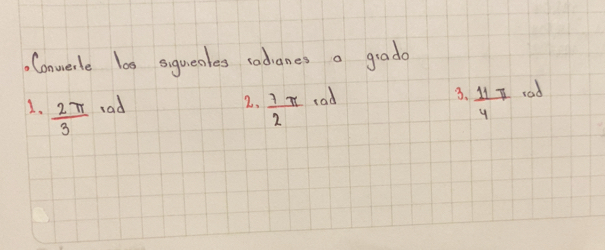 .Convierte los siguientes radianes a grado
1. 2π/3 rad 2. 7π/2 rad 3. 11π/4 rad